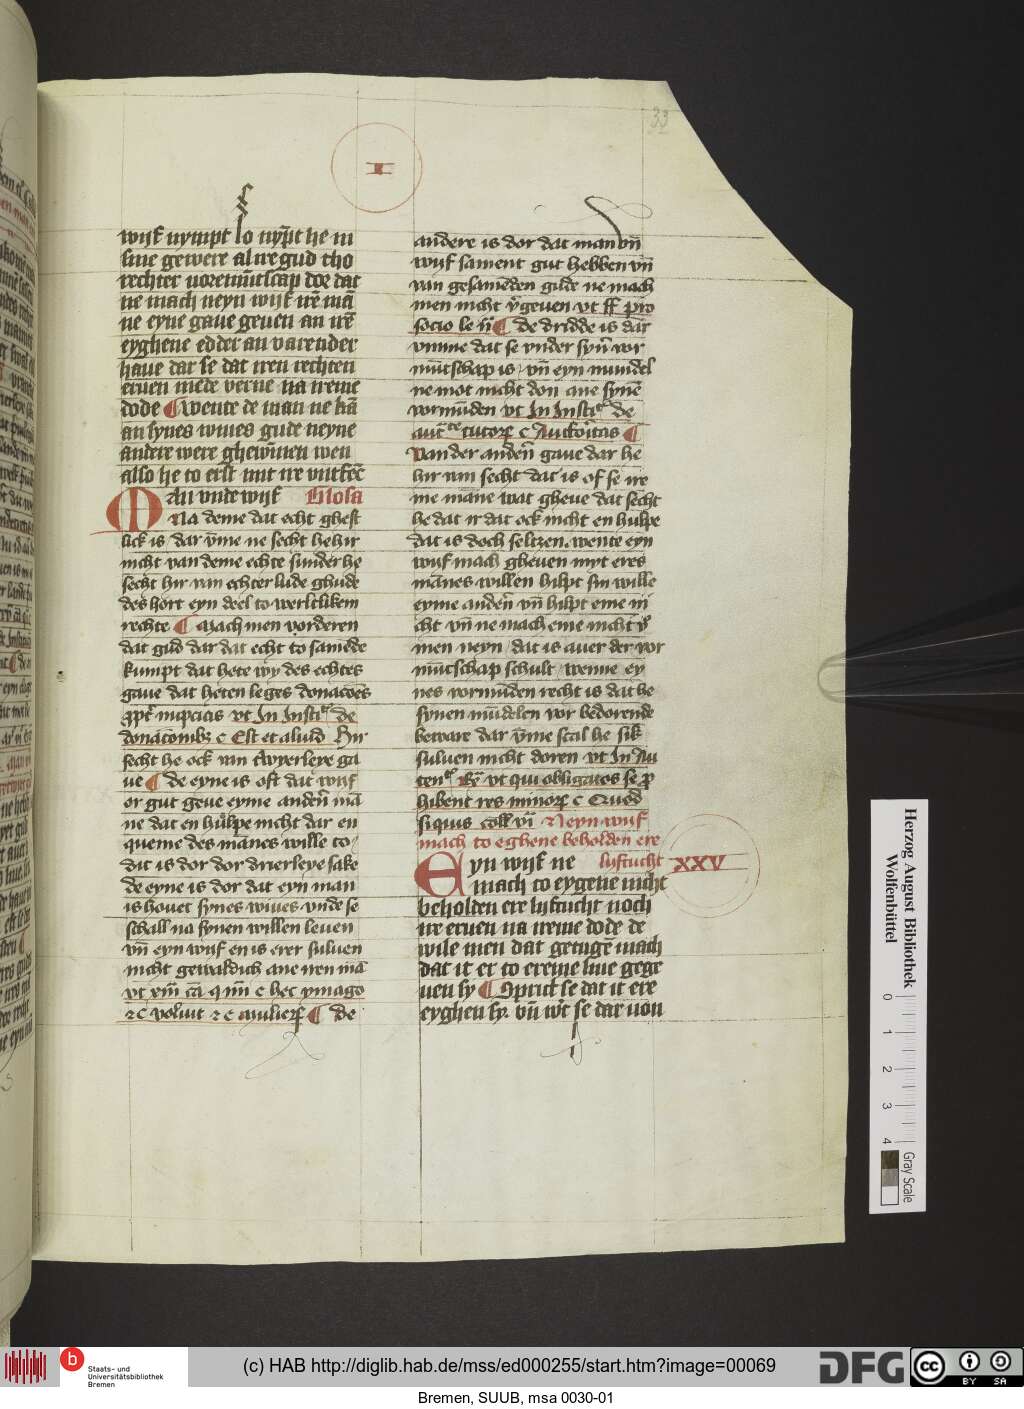 33
I
wijf nympt so nym̄t he in
sine gewere al ire gud tho
rechter vormūtscap doe dat
ne mach neyn wijf irē mā
ne eyne gaue geuen an irē
eyghene edder an varender
haue dat se dat iren rechten
eruen mede verne na ireme
dode ¶ wente de man ne kā
an synes wiues gude neyne
andere were ghewinen wen
also he to erst mit ire vntfēc
Man vnde wijf Glosa
Na deme dat echt ghest
lick is dar v̄me ne secht he hir
nicht van deme echte sunder he
secht hir van echter lude ghude
des hort eyn deel to werltlikem
rechte ¶ Mach men vorderen
dat gud dar dat echt to samēde
kumpt dat hete wy des echtes
gaue dat heten leges donacōes
ꝓpt̄ nupcias vt In Insti de
donacōnibꝫ c Est et aliud Hir
secht he ock van twyerleye ga
ue ¶ de eyne is oft dat wijf
or gut geue eyme andern̄ mā
ne dat en hulpe nicht dar en
queme des mānes wille to
dit is dor dor drierleye sake
de eyne is dor dat eyn man
is houet synes wiues vnde se
schall na synen willen leuen
vn̄ eyn wijf en is erer suluen
nicht geweldich ane iren mā
vt xxxiii cā q iiii c hec ymago
⁊c voluit ⁊ c mulierꝫ ¶ de
andere is dor dat man vn̄
wijf sament gut hebben vn̄
van gesamēden gilde ne mach
men nicht v̄geuen vt ff pro
socio le ii ¶ de dridde is dar
vmme dat se vnder syn̄ vor
mūtschap is vn̄ eyn mundel
ne mot nicht don ane synē
vormūden vt In Insti de
auct tutorꝫ c Auctoritas ¶
Van der andern̄ gaue dar he
hir van secht dat is of se ire
me māne wat gheue dat secht
he dat it dat ock nicht en hulpe
dat is doch seltzen wente eyn
wijf mach gheuen myt eres
mānes willen hilpt sin wille
eyme andern̄ vn̄ hilpt eme ni
cht vn̄ ne mach eme nicht v̄
men neyn dat is auer der vor
mūtschap schult wenne ey
nes vormūden recht is dat he
synen mūdelen vor bedorende
beware dar v̄me scal he sik
suluen nicht doren vt In Au
ten Re vt qui obligatos se ꝑ
hibent res minorꝫ c Quod
siquis coll vi Neyn wijf
mach to eghene beholden ere
lyftucht XXV
Eyn wijf ne
mach to eygene nicht
beholden ere lyftucht noch
ire eruen na ireme dode de
wile men dat getugē mach
dat it er to ereme liue gege
uen sy ¶ Sprict se dat it ere
eyghen sy vn̄ wt̄ se dar von
Herzog August Bibliothek
Wolfenbüttel
0 1 2 3 4
Gray Scale
b Staats- und
Universitätsbibliothek
Bremen
(c) HAB http://diglib.hab.de/mss/ed000255/start.htm?image=00069
DFG
cc BY SA
Bremen, SUUB, msa 0030-01